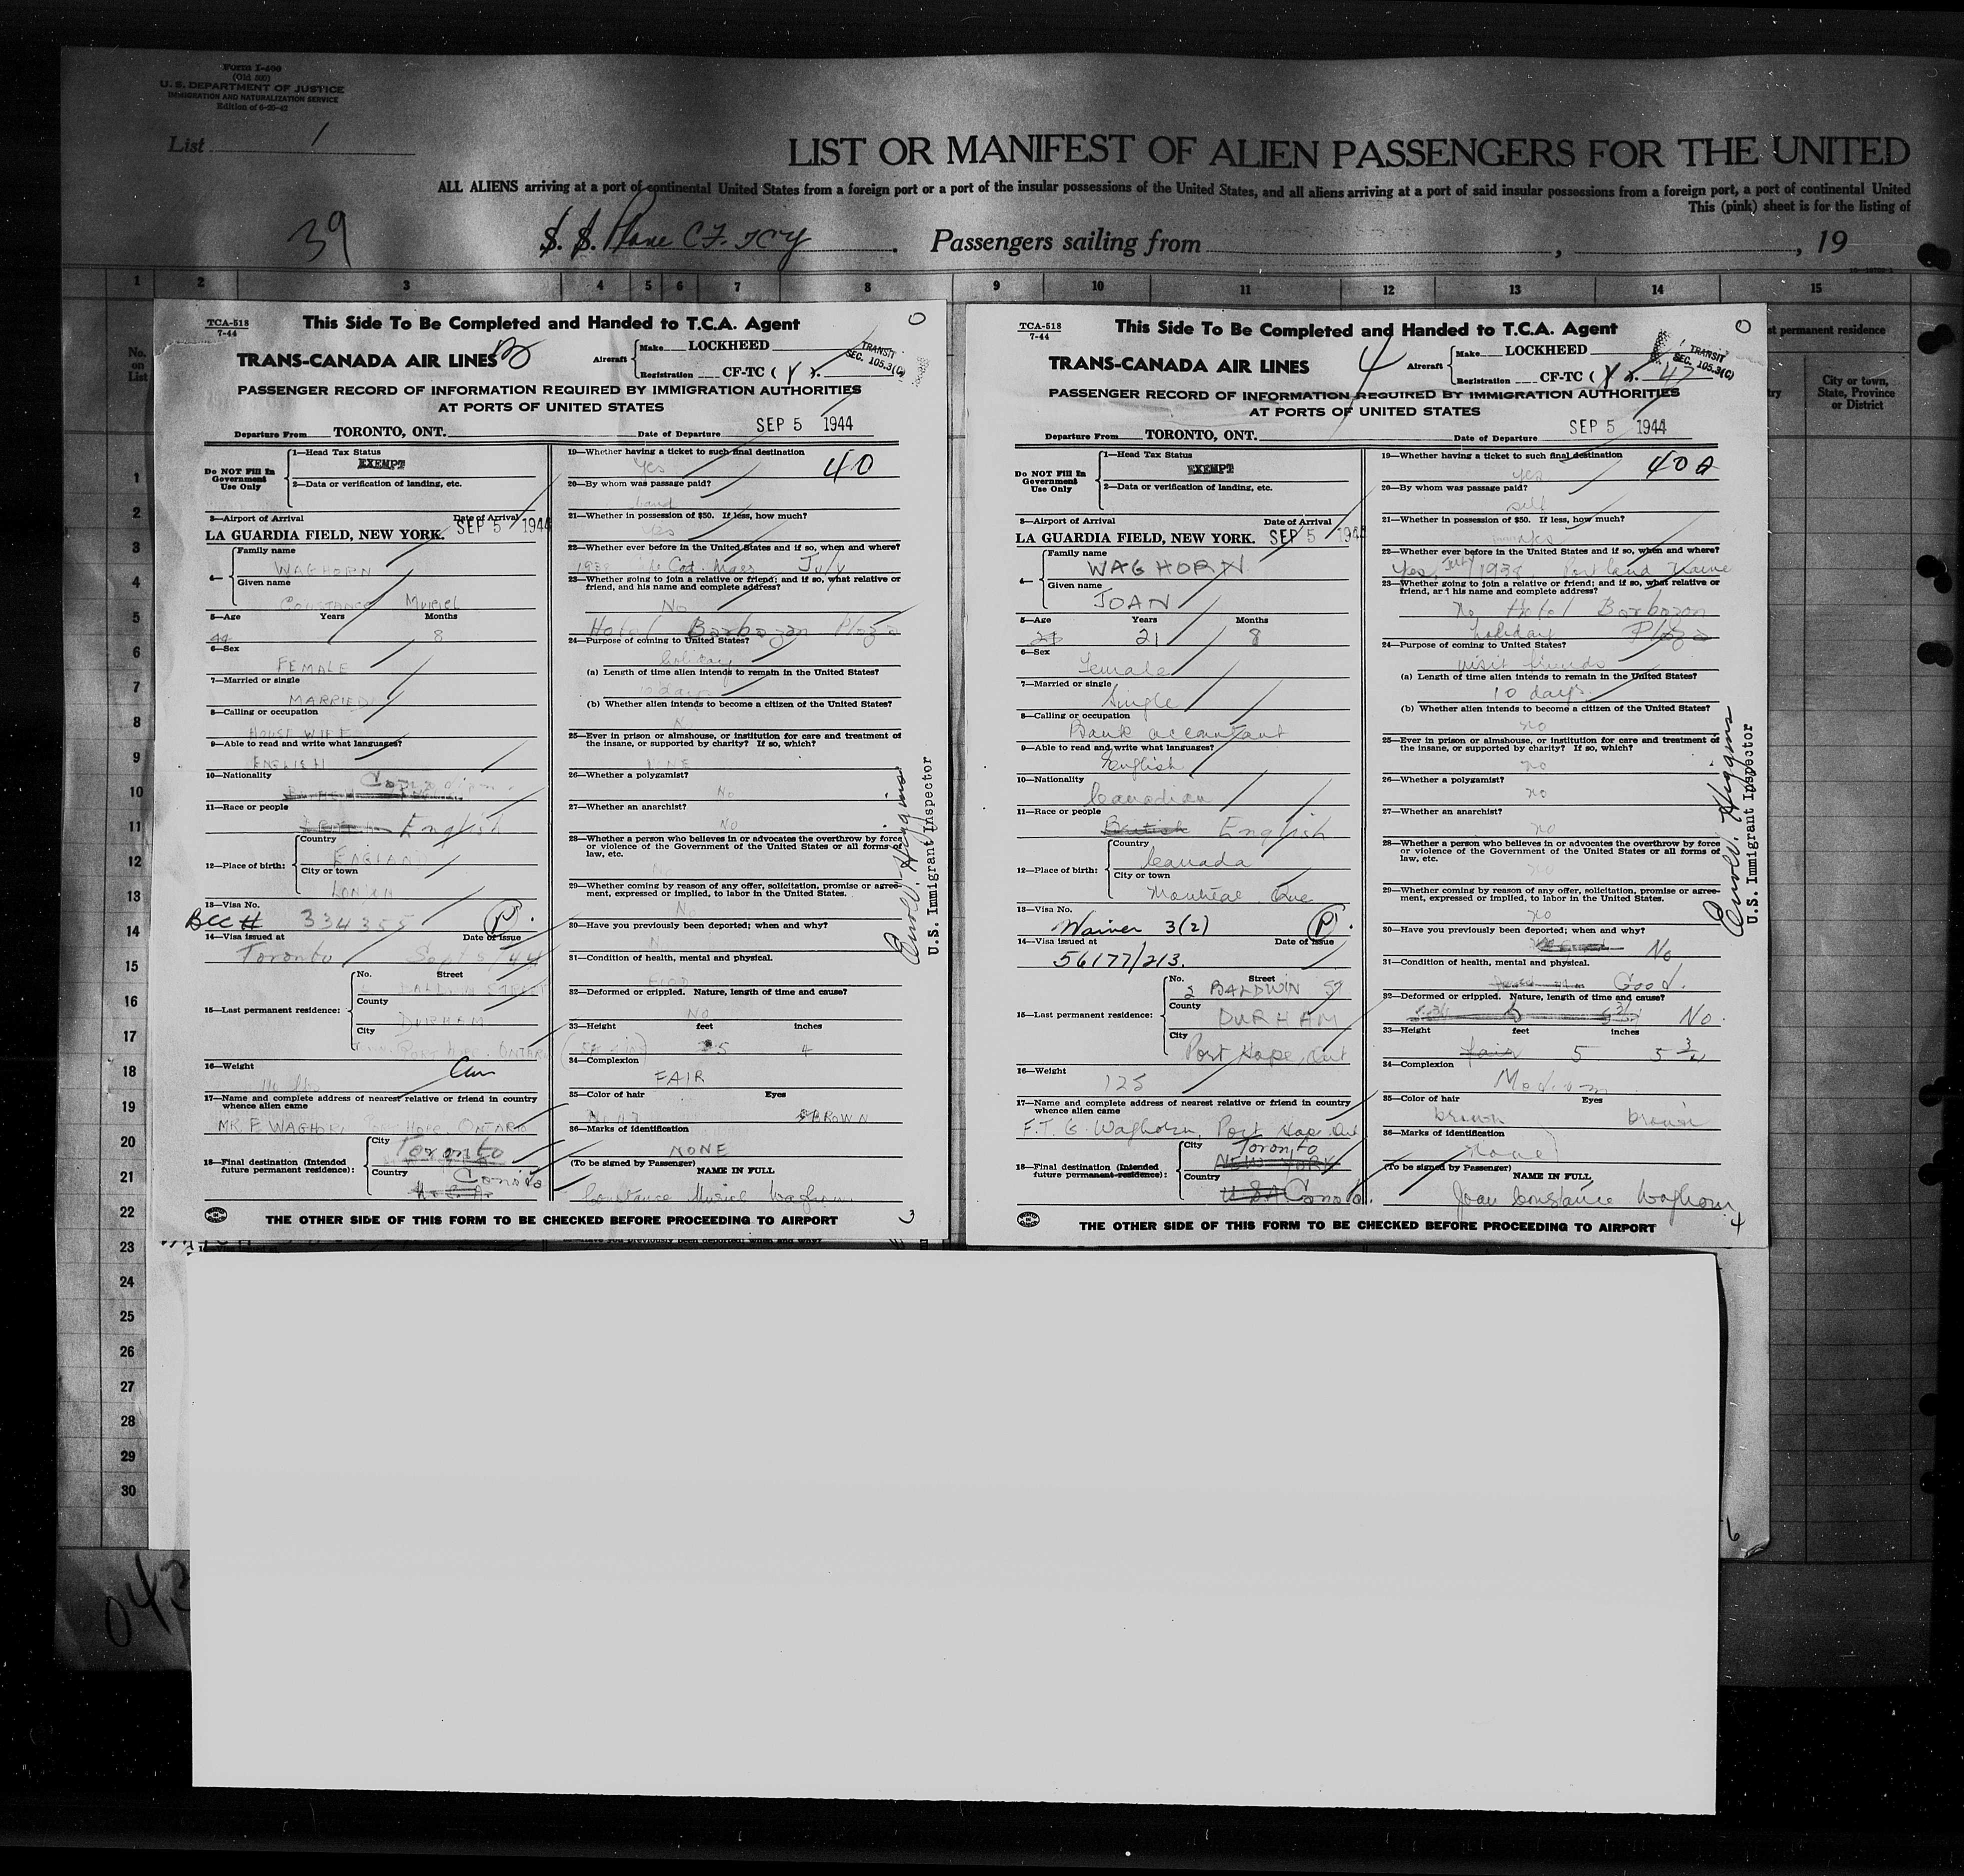 Form I-400
(Old 500)
U. S. DEPARTMENT OF JUSTICE
IMMIGRATION AND NATURALIZATION SERVICE
Edition of 6-20-42
List 1
LIST OR MANIFEST OF ALIEN PASSENGERS FOR THE UNITED
ALL ALIENS arriving at a port of continental United States from a foreign port or a port of the insular possessions of the United States, and all aliens arriving at a port of said insular possessions from a foreign port, a port of continental United
This (pink) sheet is for the listing of
39
S. S. Plane CF. TCY
Passengers sailing from , , 19
1 2 3 4 5 6 7 8 9 10 11 12 13 14 15
No. on List
st permanent residence
City or town, State, Province or District
TCA-518
7-44
This Side To Be Completed and Handed to T.C.A. Agent
TRANS-CANADA AIR LINES
Aircraft Make LOCKHEED
Registration CF-TC ( Y ).
TRANSIT
SEC. 105.3(C)
PASSENGER RECORD OF INFORMATION REQUIRED BY IMMIGRATION AUTHORITIES
AT PORTS OF UNITED STATES
Departure From TORONTO, ONT. Date of Departure SEP 5 1944
Do NOT Fill In Government Use Only
1—Head Tax Status
EXEMPT
2—Data or verification of landing, etc.
3—Airport of Arrival Date of Arrival
LA GUARDIA FIELD, NEW YORK. SEP 5 1944
4— Family name
WAGHORN
Given name
CONSTANCE MURIEL
5—Age Years Months
44 8
6—Sex
FEMALE
7—Married or single
MARRIED
8—Calling or occupation
HOUSEWIFE
9—Able to read and write what languages?
ENGLISH
10—Nationality
Canadian
11—Race or people
English
12—Place of birth: Country
ENGLAND
City or town
LONDON
13—Visa No.
BCC # 334355 (P).
14—Visa issued at Date of issue
Toronto Sept 5/44
15—Last permanent residence: No. Street
BALDWIN STREET
County
DURHAM
City
PORT HOPE. ONTARIO
16—Weight
17—Name and complete address of nearest relative or friend in country
whence alien came
MR F. WAGHORN PORT HOPE, ONTARIO
18—Final destination (Intended future permanent residence): City
Toronto
Country
Canada
U. S. A.
19—Whether having a ticket to such final destination
Yes 40
20—By whom was passage paid?
21—Whether in possession of $50. If less, how much?
Yes
22—Whether ever before in the United States and if so, when and where?
1938 Cod. Mass July
23—Whether going to join a relative or friend; and if so, what relative or
friend, and his name and complete address?
No
Hotel Barbazon Plaza
24—Purpose of coming to United States?
holiday
(a) Length of time alien intends to remain in the United States?
10 days
(b) Whether alien intends to become a citizen of the United States?
No
25—Ever in prison or almshouse, or institution for care and treatment of
the insane, or supported by charity? If so, which?
NONE
26—Whether a polygamist?
No
27—Whether an anarchist?
No
28—Whether a person who believes in or advocates the overthrow by force
or violence of the Government of the United States or all forms of
law, etc.
No
29—Whether coming by reason of any offer, solicitation, promise or agree-
ment, expressed or implied, to labor in the United States.
No
30—Have you previously been deported; when and why?
31—Condition of health, mental and physical.
GOOD
32—Deformed or crippled. Nature, length of time and cause?
NO
33—Height feet inches
5 4
34—Complexion
FAIR
35—Color of hair Eyes
BROWN
36—Marks of identification
NONE
(To be signed by Passenger) NAME IN FULL
Constance Muriel Waghorn
THE OTHER SIDE OF THIS FORM TO BE CHECKED BEFORE PROCEEDING TO AIRPORT
3
U.S. Immigrant Inspector
TCA-518
7-44
This Side To Be Completed and Handed to T.C.A. Agent
TRANS-CANADA AIR LINES 4
Aircraft Make LOCKHEED
Registration CF-TC ( Y ). 47
TRANSIT
SEC. 105.3(C)
PASSENGER RECORD OF INFORMATION REQUIRED BY IMMIGRATION AUTHORITIES
AT PORTS OF UNITED STATES
Departure From TORONTO, ONT. Date of Departure SEP 5 1944
Do NOT Fill In Government Use Only
1—Head Tax Status
EXEMPT
2—Data or verification of landing, etc.
3—Airport of Arrival Date of Arrival
LA GUARDIA FIELD, NEW YORK. SEP 5 194
4— Family name
WAGHORN
Given name
JOAN
5—Age Years Months
21 21 8
6—Sex
Female
7—Married or single
Single
8—Calling or occupation
Bank accountant
9—Able to read and write what languages?
English
10—Nationality
Canadian
11—Race or people
British English
12—Place of birth: Country
Canada
City or town
Montreal Que
13—Visa No.
Waiver 3(2) (P).
14—Visa issued at Date of issue
56177/213.
15—Last permanent residence: No. Street
BALDWIN ST
County
DURHAM
City
Port Hope, Ont
16—Weight
125
17—Name and complete address of nearest relative or friend in country
whence alien came
F. T. G. Waghorn, Port Hope Ont
18—Final destination (Intended future permanent residence): City
Toronto
NEW YORK
Country
U S A Canada.
19—Whether having a ticket to such final destination
yes 40 A
20—By whom was passage paid?
self
21—Whether in possession of $50. If less, how much?
yes
22—Whether ever before in the United States and if so, when and where?
Yes, July 1938 Portland Maine
23—Whether going to join a relative or friend; and if so, what relative or
friend, and his name and complete address?
No Hotel Barbazon
holiday Plaza
24—Purpose of coming to United States?
visit friends
(a) Length of time alien intends to remain in the United States?
10 days.
(b) Whether alien intends to become a citizen of the United States?
no
25—Ever in prison or almshouse, or institution for care and treatment of
the insane, or supported by charity? If so, which?
no
26—Whether a polygamist?
no
27—Whether an anarchist?
no
28—Whether a person who believes in or advocates the overthrow by force
or violence of the Government of the United States or all forms of
law, etc.
no
29—Whether coming by reason of any offer, solicitation, promise or agree-
ment, expressed or implied, to labor in the United States.
no
30—Have you previously been deported; when and why?
No
31—Condition of health, mental and physical.
Good.
32—Deformed or crippled. Nature, length of time and cause?
No.
33—Height feet inches
fair 5 5 3/4
34—Complexion
Medium
35—Color of hair Eyes
brown brown
36—Marks of identification
none
(To be signed by Passenger) NAME IN FULL
Joan Constance Waghorn
THE OTHER SIDE OF THIS FORM TO BE CHECKED BEFORE PROCEEDING TO AIRPORT
4
U.S. Immigrant Inspector
1
2
3
4
5
6
7
8
9
10
11
12
13
14
15
16
17
18
19
20
21
22
23
24
25
26
27
28
29
30
6
042